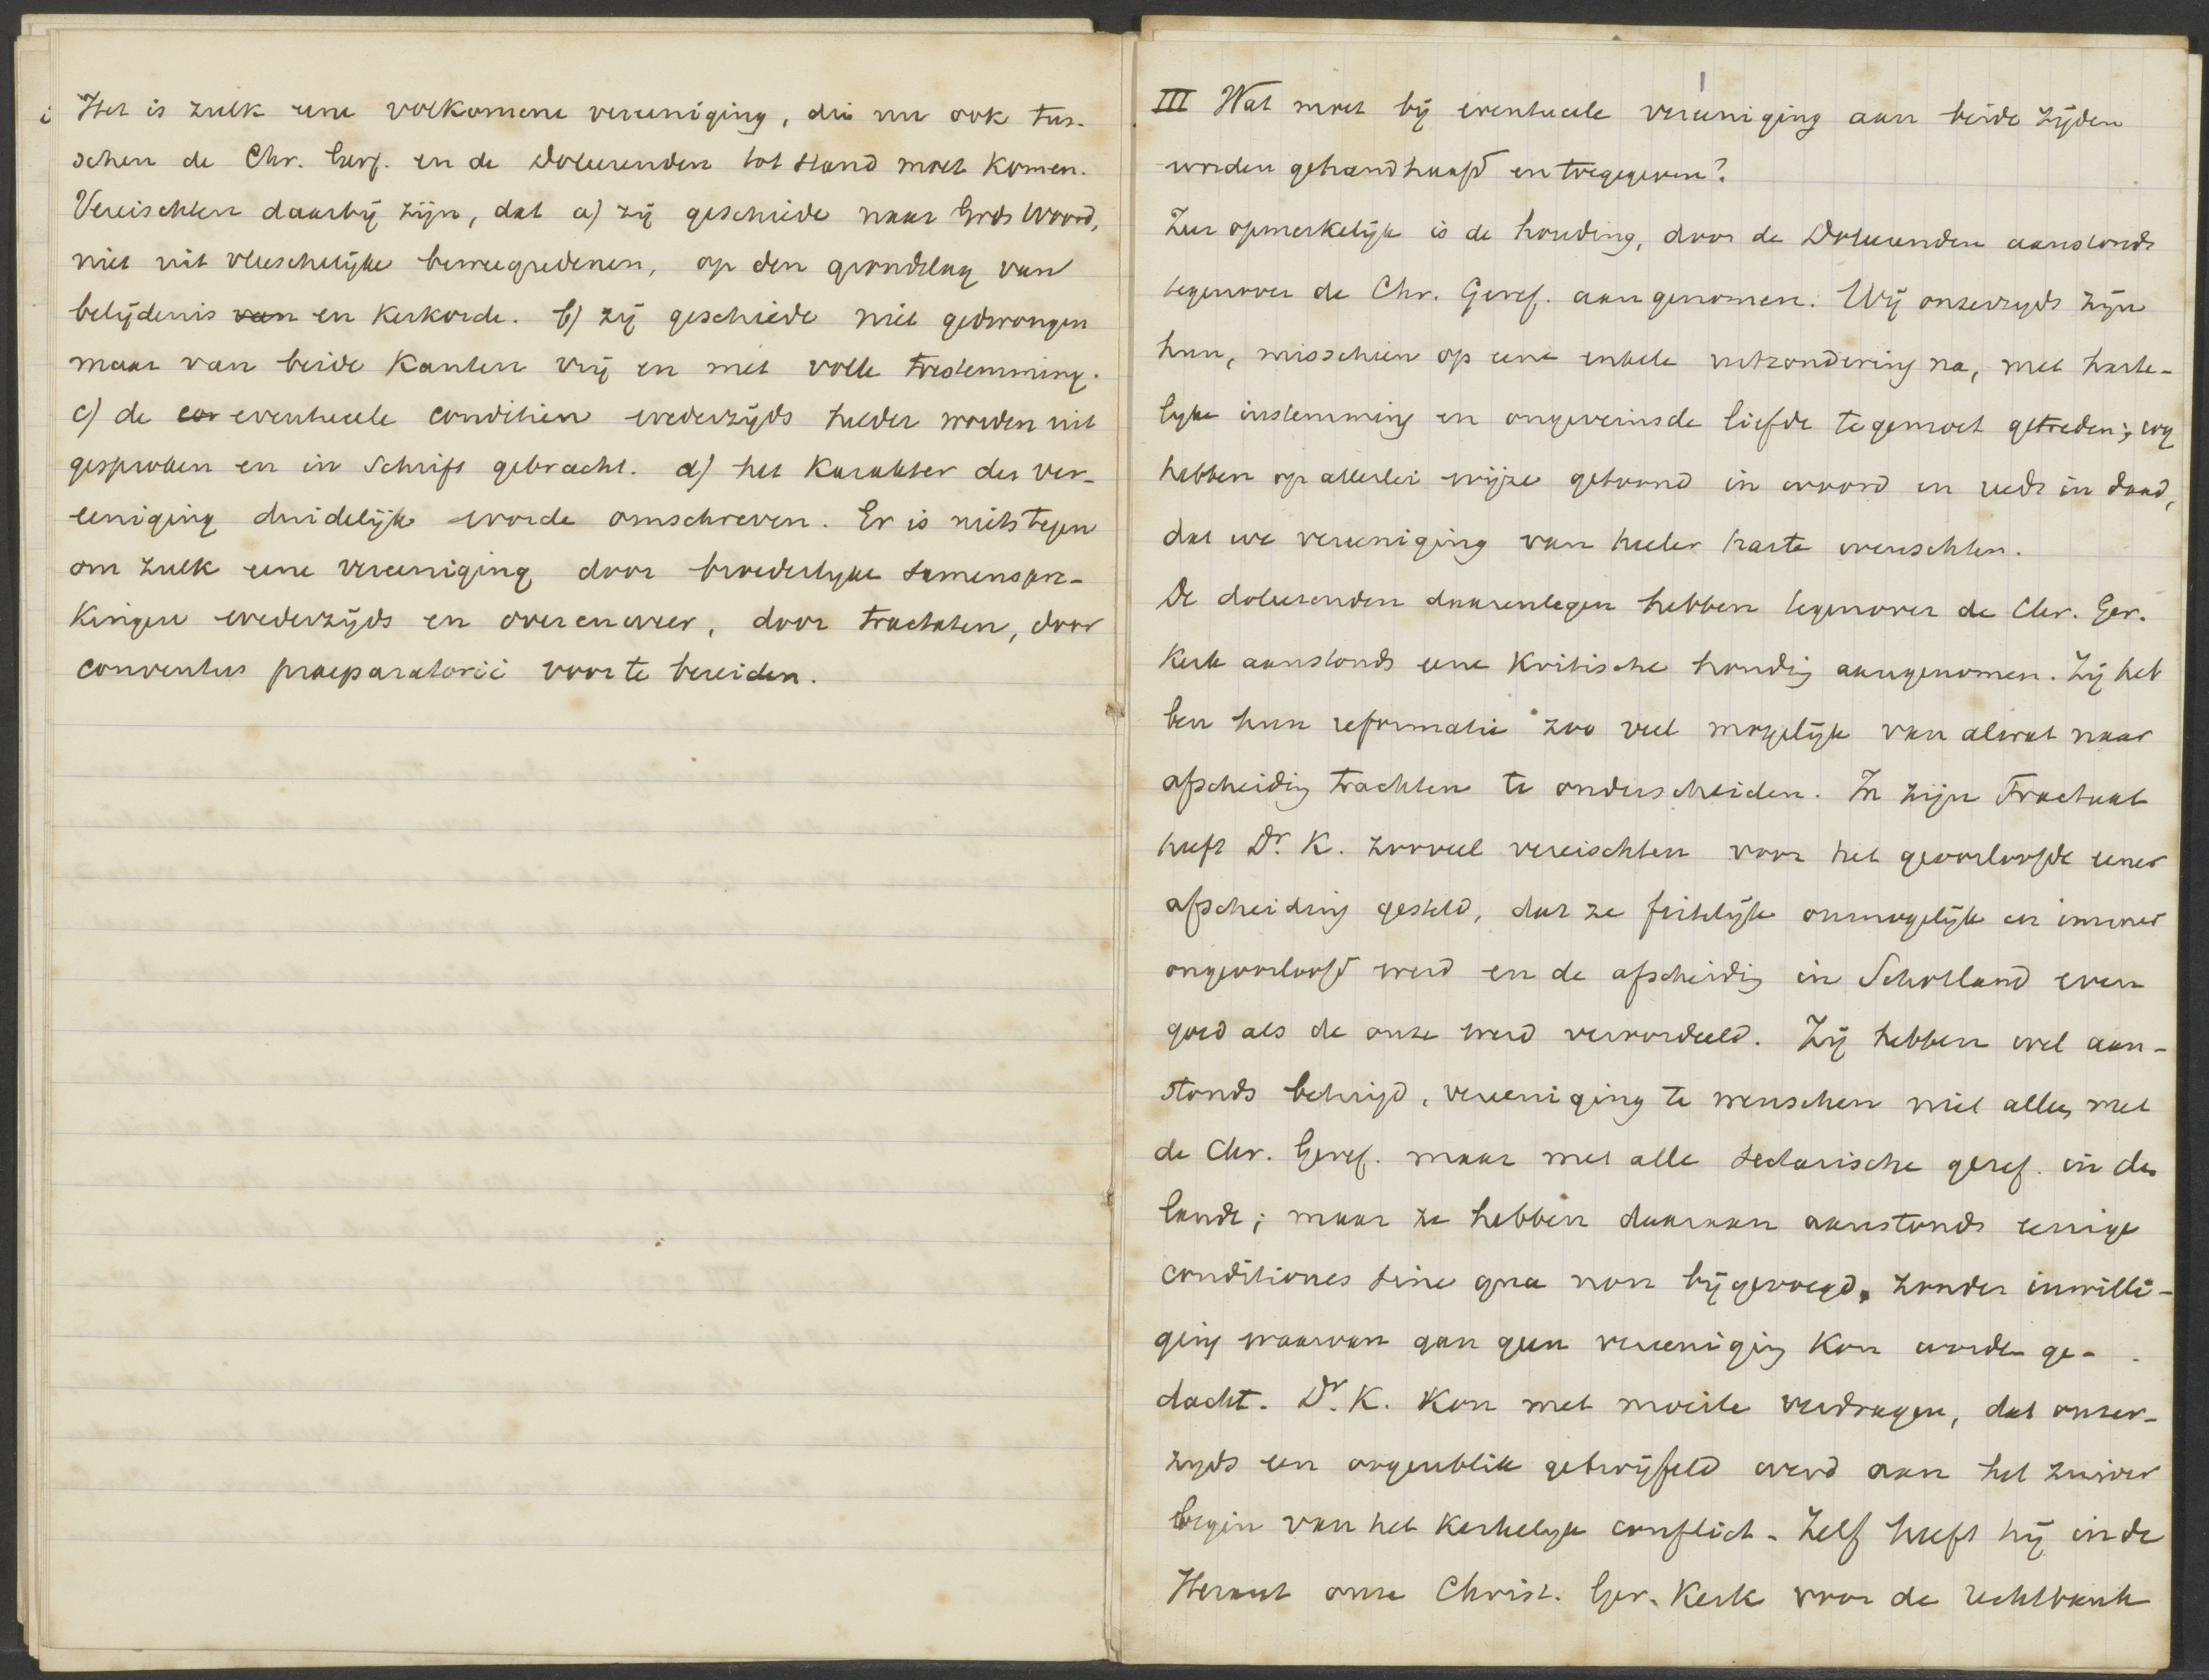 i Het is zulk eene volkomene vereeniging, die nu ook tus-
schen de Chr. Geref. en de Doleerenden tot stand moet komen.
Vereischten daarbij zijn, dat a) zij geschiede naar Gods Woord,
niet uit vleeschelijke beweegredenen, op den grondslag van
belijdenis van en Kerkorde. b) zij geschiede niet gedwongen
maar van beide Kanten vrij en met volle toestemming.
c) de con eventueele conditien wederzijds helder worden uit
gesproken en in Schrift gebracht. d) het Karakter der ver-
eeniging duidelijk worde omschreven. Er is niets tegen
om zulk eene vereeniging door broederlyke samenspre-
kingen wederzijds en over en weer, door tractaten, door
conventus praeparatorii voor te bereiden.
III Wat moet bij eventueele vereeniging aan beide zijden
worden gehandhaafd en toegegeven?
Zeer opmerkelijk is de houding, door de Doleerenden aanstonds
tegenover de Chr. Geref. aangenomen. Wij onzerzyds zijn
hun, misschien op eene enkele uitzondering na, met harte-
lyke instemming en ongeveinsde liefde tegemoet getreden; wij
hebben op allerlei wijze getoond in woord en reeds in daad,
dat we vereeniging van heeler harte wenschten.
De doleerenden daarentegen hebben tegenover de Chr. Ger.
Kerk aanstonds eene Kritische houdig aangenomen. Zij heb
ben hun reformatie zoo veel mogelijk van alwat naar
afscheidig trachten te onderscheiden. In zijn Tractaat
heeft Dr. K. zooveel vereischten voor het geoorloofde eener
afscheiding gesteld, dat ze feitelijk onmogelijk en immer
ongeoorloofd werd en de afscheidig in Schotland even
goed als de onze werd veroordeeld. Zij hebben wel aan-
stonds betuigd, vereeniging te wenschen niet alleen met
de Chr. Geref. maar met alle sectarische geref. in den
lande; maar ze hebben daaraan aanstonds eenige
conditiones sine qua non bijgevoegd, zonder inwilli-
ging waarvan aan geen vereenigig Kon worden ge-
dacht. Dr. K. Kon met moeite verdragen, dat onzer-
zyds een oogenblik getwijfeld werd aan het zuiver
begin van het Kerkelyk conflict. Zelf heeft hij in de
Heraut onze Christ. Ger. Kerk voor de rechtbank